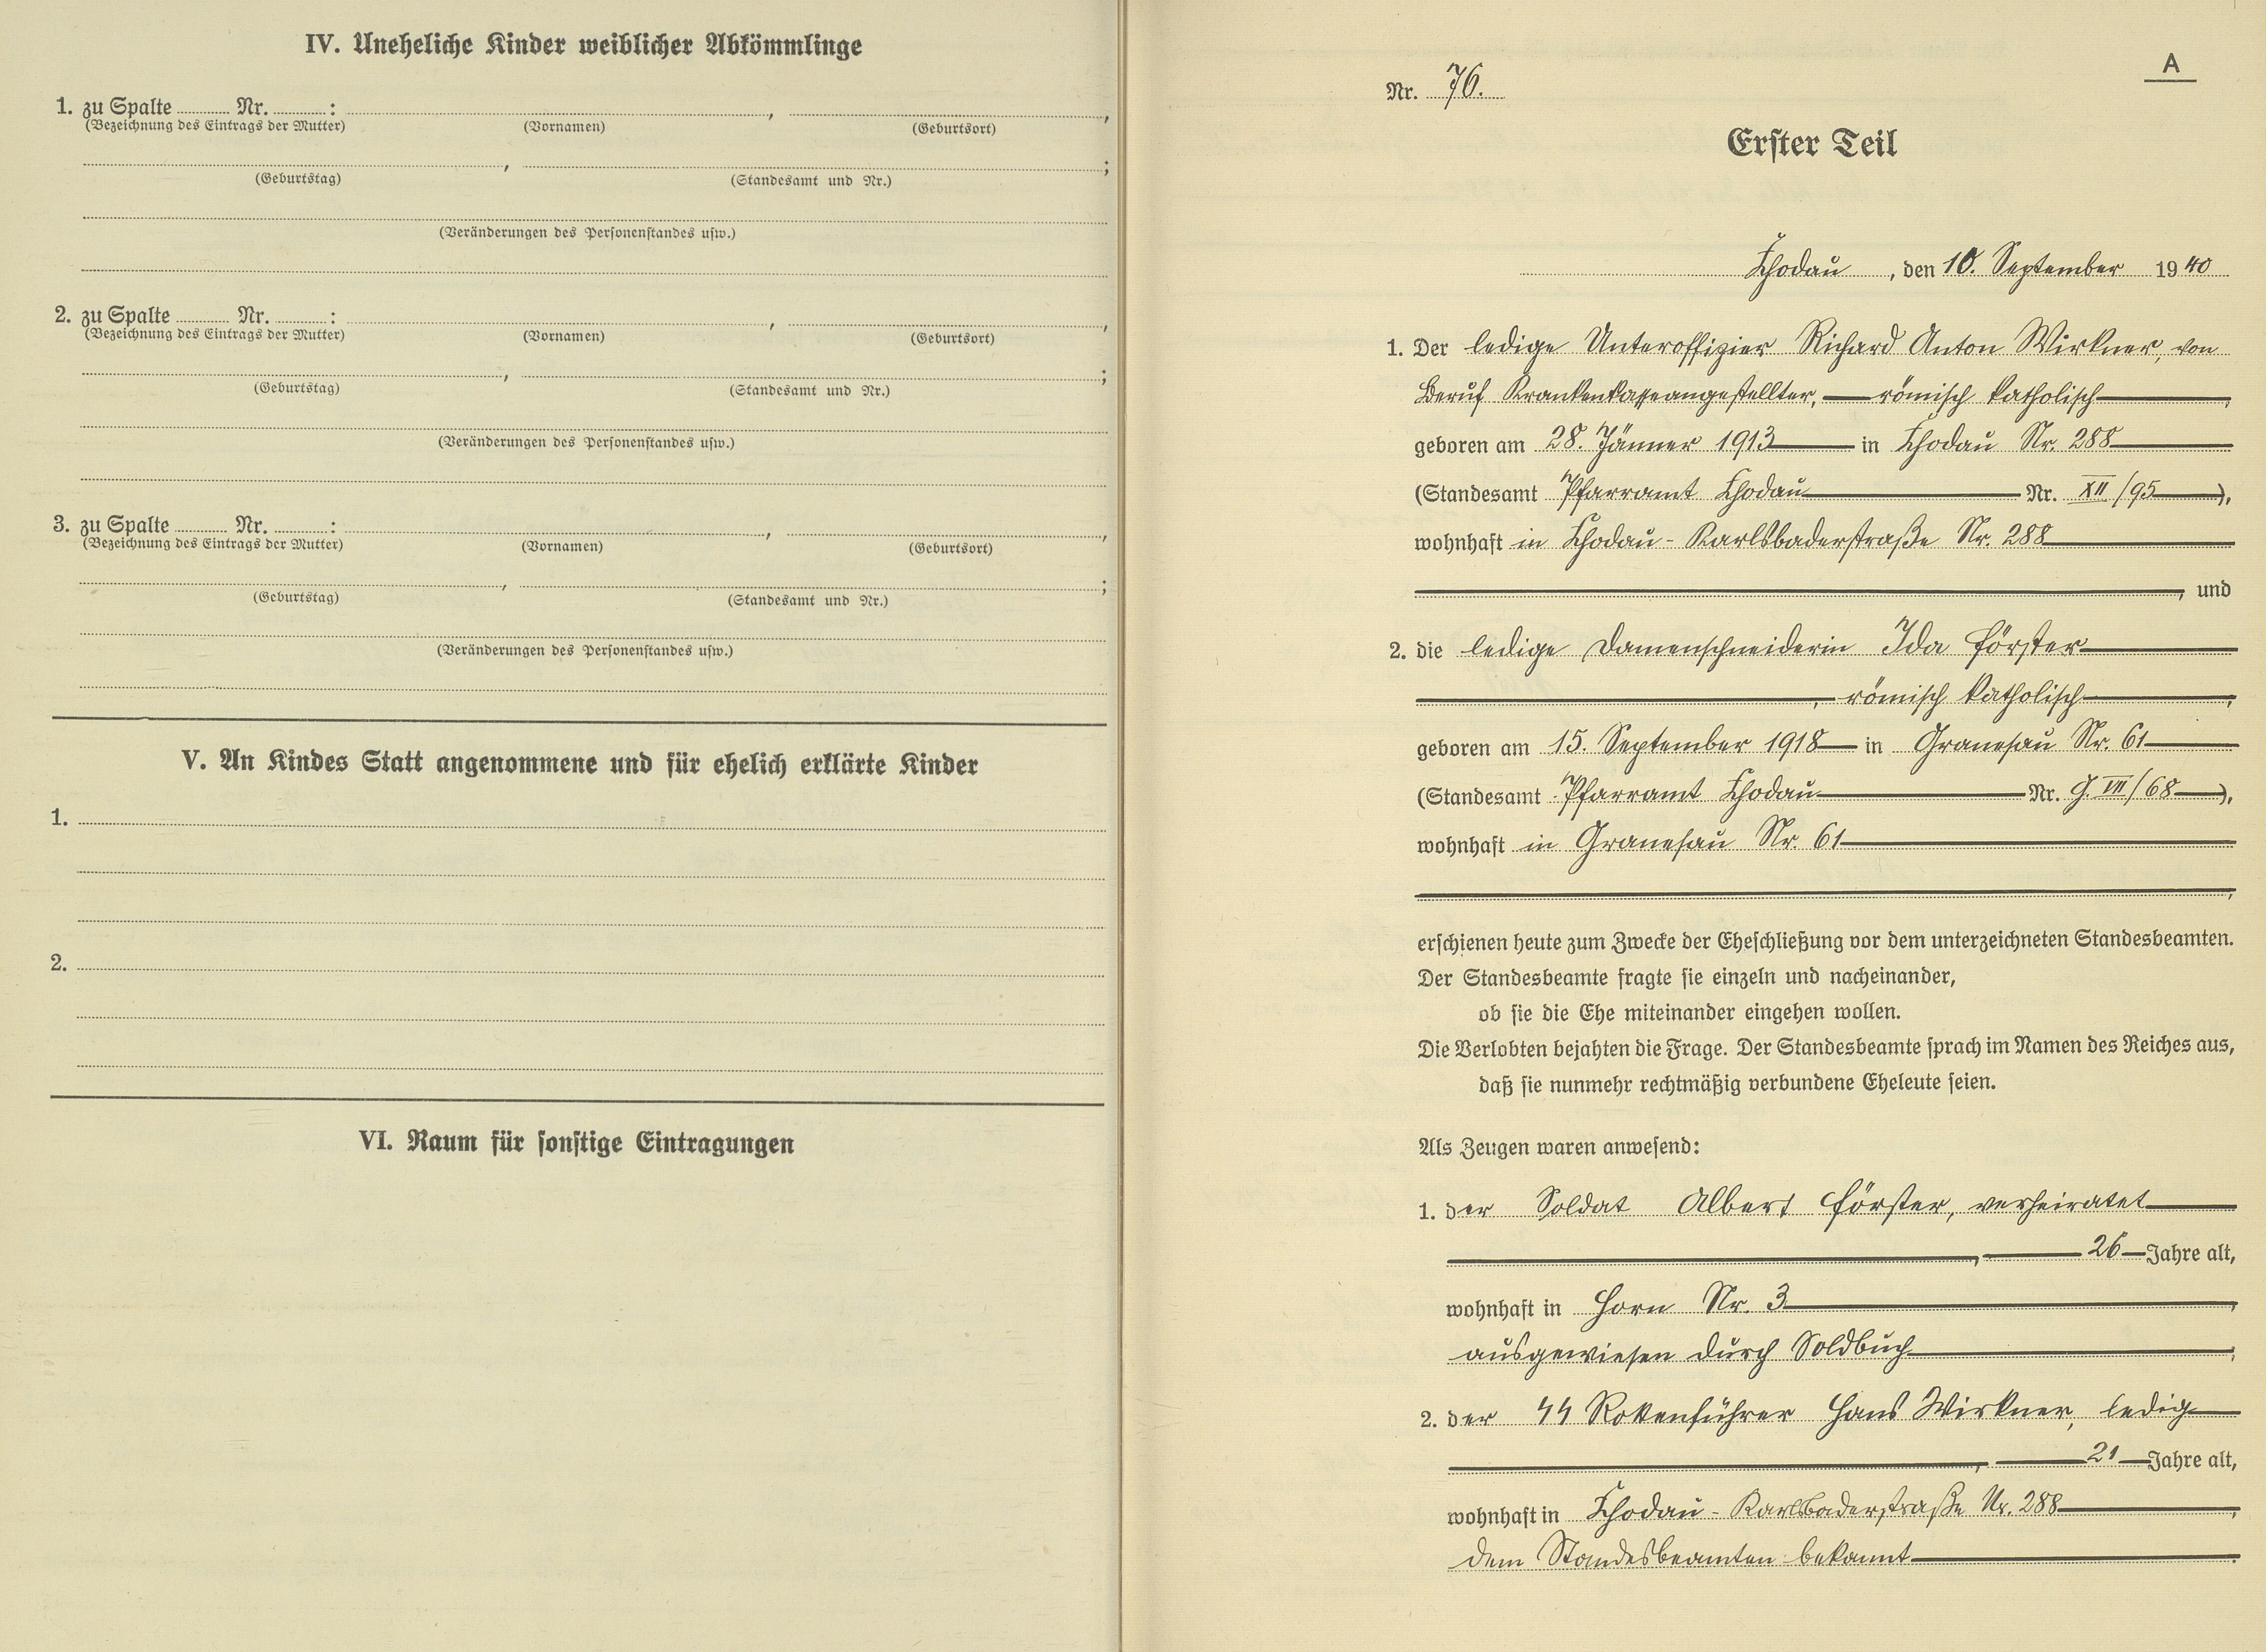 IV. Uneheliche Kinder weiblicher Abkömmlinge
1. zu Spalte ........ Nr. ........ : , ,
(Bezeichnung des Eintrags der Mutter) (Vornamen) (Geburtsort)
, ;
(Geburtstag) (Standesamt und Nr.)
(Veränderungen des Personenstandes usw.)
2. zu Spalte ........ Nr. ........ : , ,
(Bezeichnung des Eintrags der Mutter) (Vornamen) (Geburtsort)
, ;
(Geburtstag) (Standesamt und Nr.)
(Veränderungen des Personenstandes usw.)
3. zu Spalte ........ Nr. ........ : , ,
(Bezeichnung des Eintrags der Mutter) (Vornamen) (Geburtsort)
, ;
(Geburtstag) (Standesamt und Nr.)
(Veränderungen des Personenstandes usw.)
V. An Kindes Statt angenommene und für ehelich erklärte Kinder
1.
2.
VI. Raum für sonstige Eintragungen
A
Nr. 76.
Erster Teil
Chodau, den 10. September 1940
1. Der ledige Unteroffizier Richard Anton Wirkner, von
Beruf Krankenkasseangestellter, — römisch katholisch —,
geboren am 28. Jänner 1913 — in Chodau Nr. 288 —
(Standesamt Pfarramt Chodau — Nr. XII/95 —),
wohnhaft in Chodau - Karlsbaderstraße Nr. 288 —
—, und
2. die ledige Damenschneiderin Ida Förster —
—, römisch katholisch —,
geboren am 15. September 1918 — in Granesau Nr. 61 —
(Standesamt Pfarramt Chodau — Nr. G. VII/68 —),
wohnhaft in Granesau Nr. 61 —
—,
erschienen heute zum Zwecke der Eheschließung vor dem unterzeichneten Standesbeamten.
Der Standesbeamte fragte sie einzeln und nacheinander,
ob sie die Ehe miteinander eingehen wollen.
Die Verlobten bejahten die Frage. Der Standesbeamte sprach im Namen des Reiches aus,
daß sie nunmehr rechtmäßig verbundene Eheleute seien.
Als Zeugen waren anwesend:
1. der Soldat Albert Förster, verheiratet —
—, — 26 — Jahre alt,
wohnhaft in Horn Nr. 3 —,
ausgewiesen durch Soldbuch —;
2. der SS Rottenführer Hans Wirkner, ledig —
—, — 21 — Jahre alt,
wohnhaft in Chodau - Karlsbaderstraße Nr. 288 —,
dem Standesbeamten bekannt —.